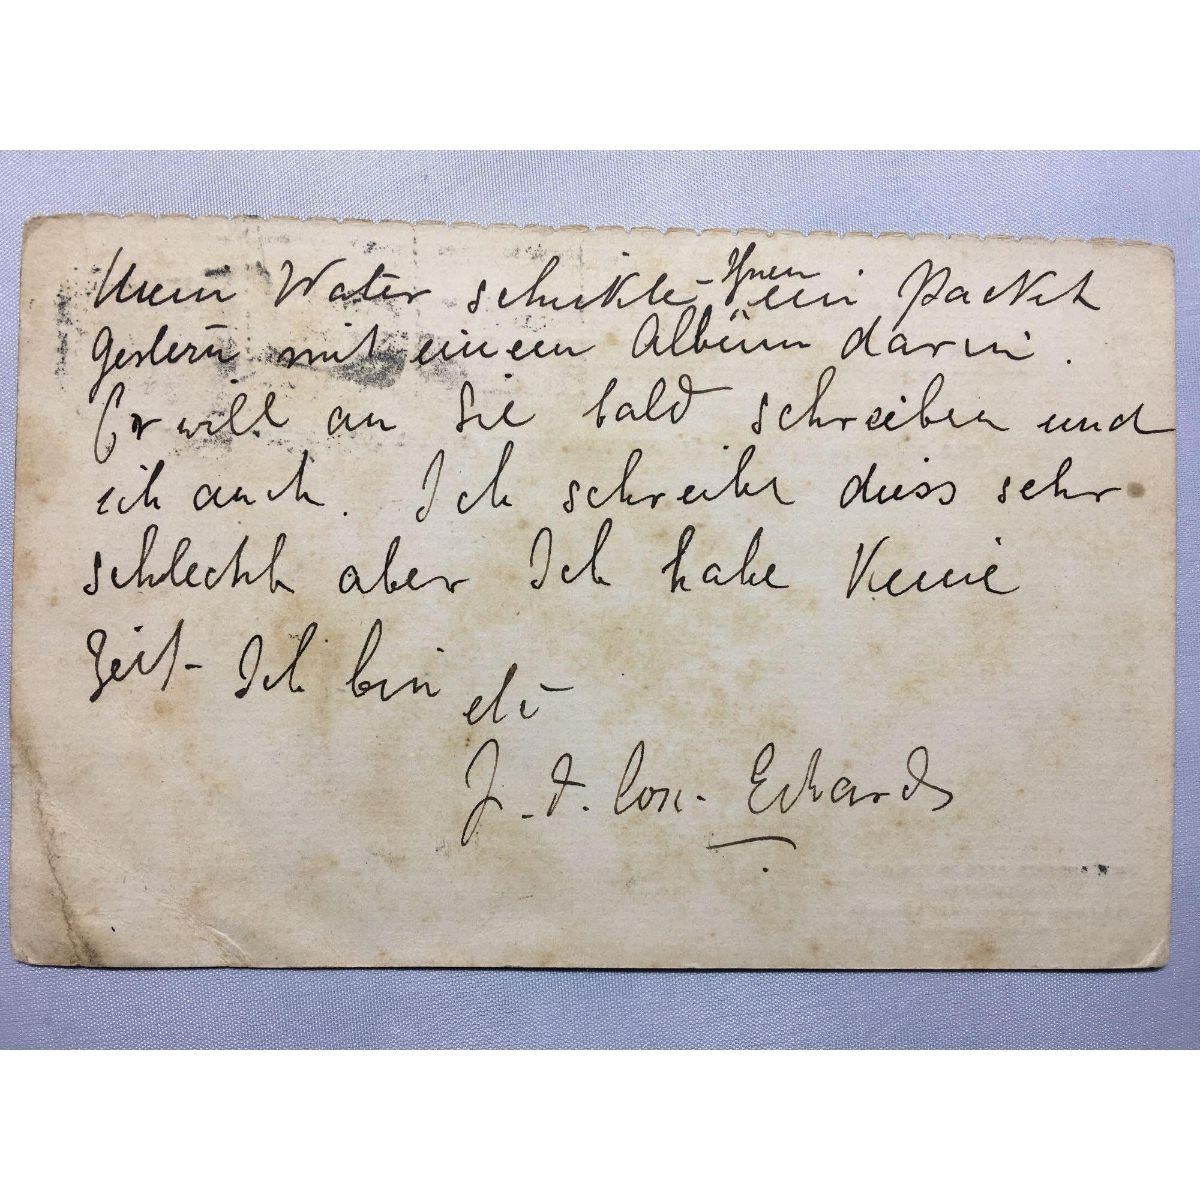 Mein Vater schickte Ihnen ein Packet
gestern mit einem Album darin.
Er will an Sie bald schreiben und
ich auch. Ich schreibe diess sehr
schlecht aber Ich habe Keine
Zeit - Ich bin
etc
J. d. Cox. Edwards